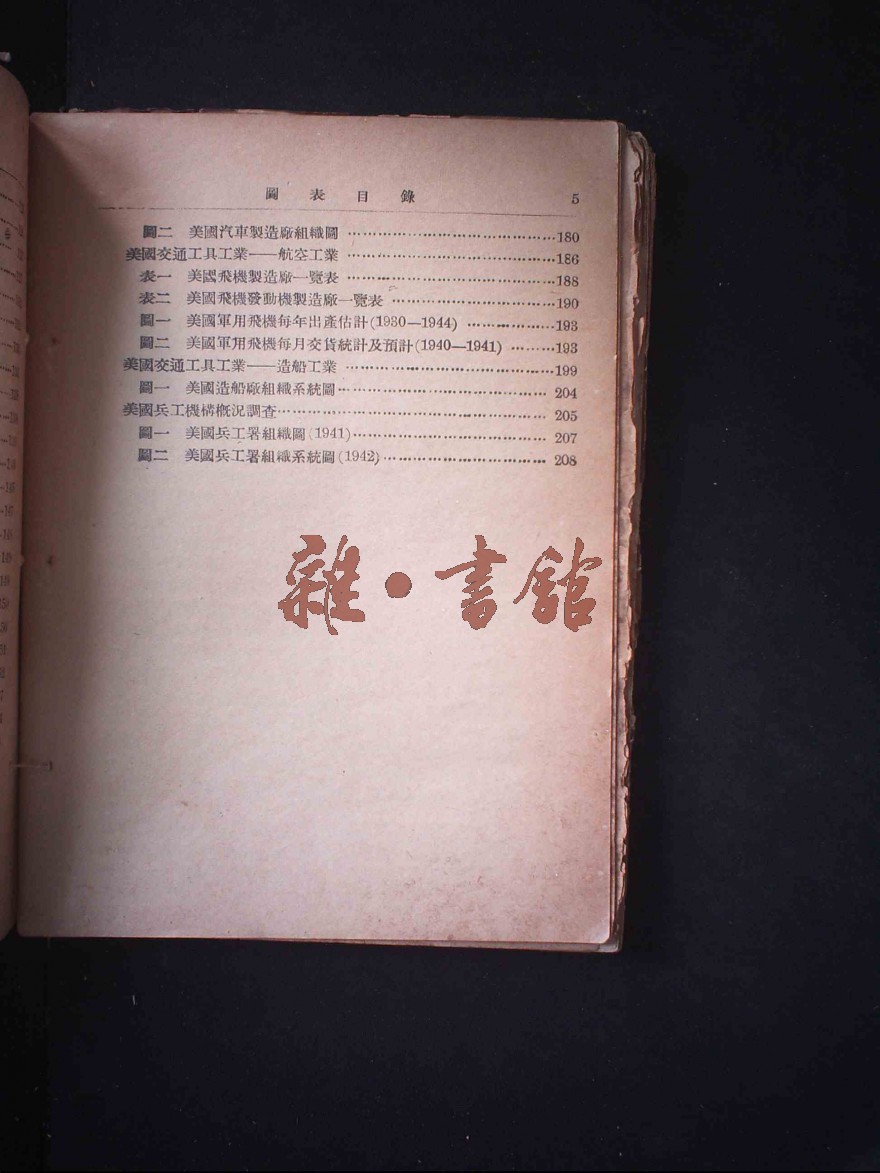 圖表目錄 5
圖二 美國汽車製造廠組織圖 ……………………………180
美國交通工具工業——航空工業 ……………………………186
表一 美國飛機製造廠一覽表 ……………………………188
表二 美國飛機發動機製造廠一覽表 ……………………………190
圖一 美國軍用飛機每年出產估計(1930—1944) ……………193
圖二 美國軍用飛機每月交貨統計及預計(1940—1941) ………193
美國交通工具工業——造船工業 ……………………………199
圖一 美國造船廠組織系統圖…………………………… 204
美國兵工機構概況調查…………………………………… 205
圖一 美國兵工署組織圖(1941)…………………………… 207
圖二 美國兵工署組織系統圖(1942)…………………………… 208
雜·書館